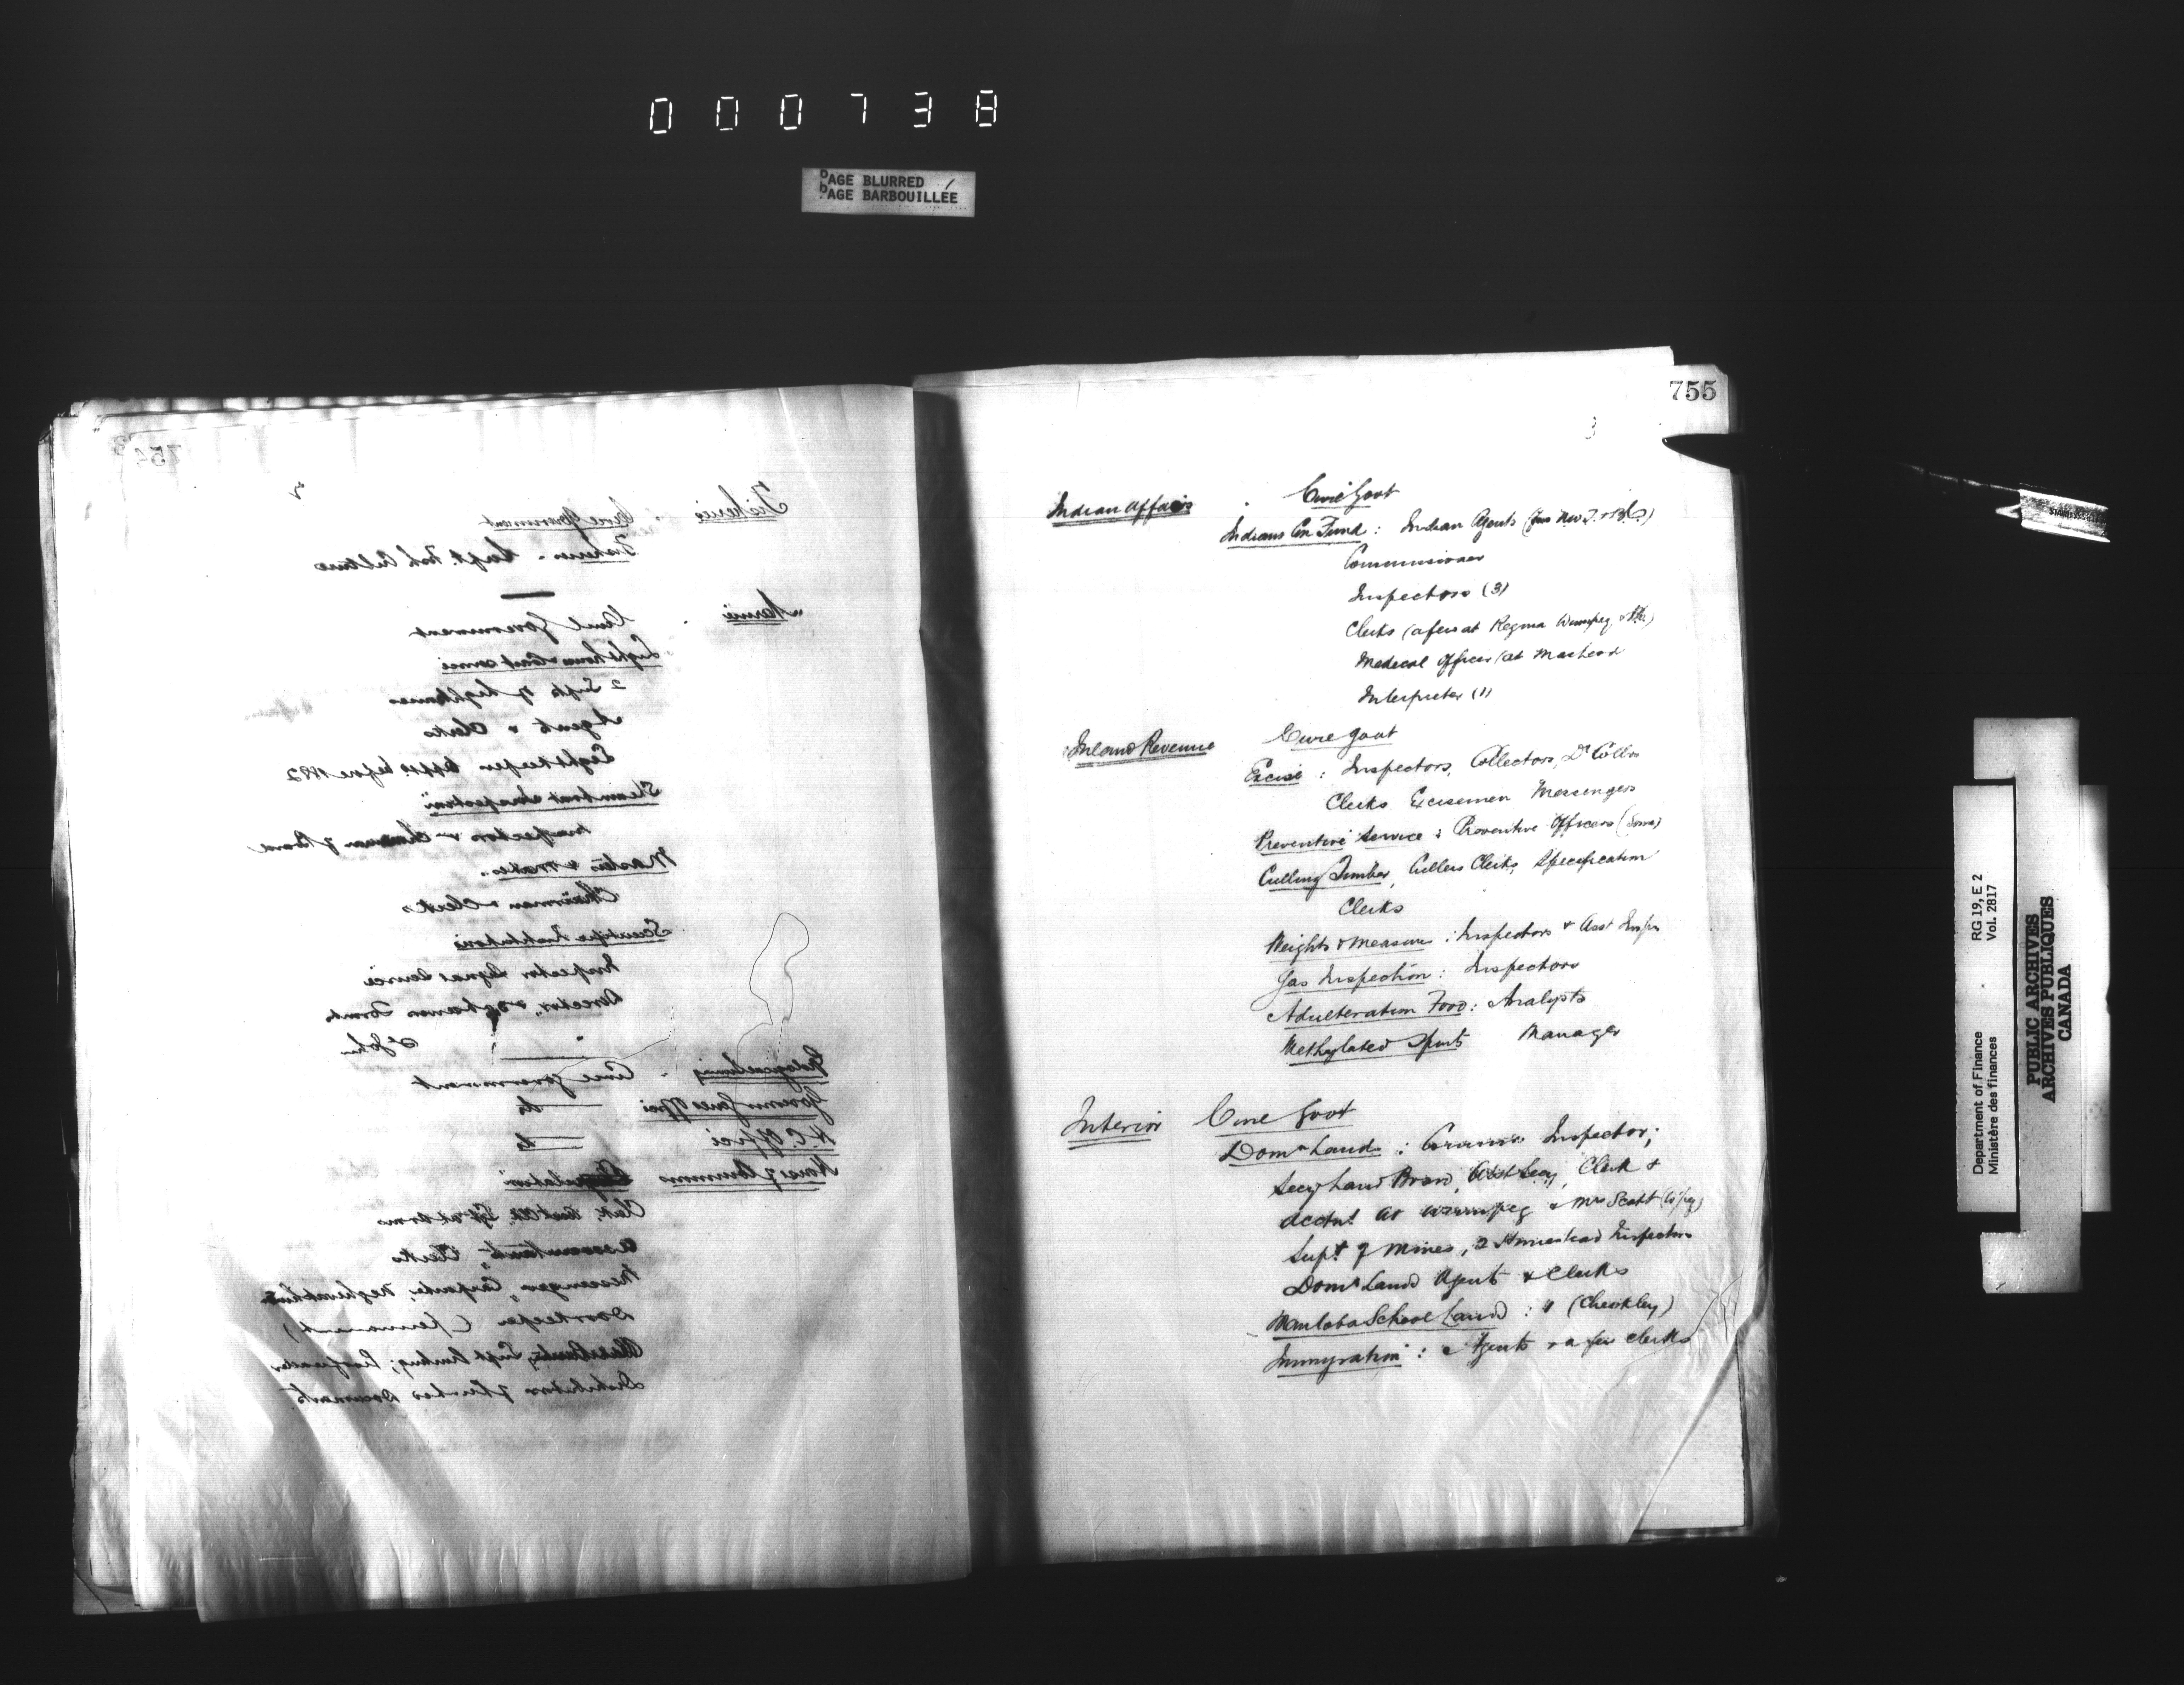 000738
PAGE BLURRED
PAGE BARBOUILLÉE
754
2
Fisheries - Civil Government
Fisheries - Supt. Fish Culture
Marine
Civil Government
Lighthouse & Coast Service
2 Supts of Lighthouses
Agents & Clerks
Lightkeepers before 1882
Steamboat Inspection
Inspectors & Chairman of Board
Masters & Mates
Chairman & Clerks
Scientific Institutions
Inspector Signal Service
Director
St John
Geological Survey - Civil Government
Governor Genls Office do
H.C. Office do
House of Commons Legislation
Clerk, Sergt at Arms
Accountant, Clerks
Messengers, Carpenter,
Doorkeeper (permanent)
Supt Printing; Proofreader
Distributor of Printed Documents
755
3
Indian Affairs Civil Govt
Indians Con Fund : Indian Agents
Commissioner
Inspectors (3)
Clerks (a few at Regina Winnipeg
Medical Officer (at Macleod
Interpreter (1)
Inland Revenue Civil Govt
Excise : Inspectors, Collectors, Dy Collrs
Clerks Excisemen Messengers
Preventive Service : Preventive Officers (some)
Culling Timber, Cullers Clerks, Specification
Clerks
Weights & Measures : Inspectors & Asst Insprs
Gas Inspection : Inspectors
Adulteration Food : Analysts
Methylated Spirits Manager
Interior Civil Govt
Domn Lands : Commr Inspector;
Secy Land Board, Asst Secy, Clerk &
Acctnt at Winnipeg & Mrs Scott (W'peg)
Supt of Mines, 2 Homestead Inspectors
Domn Lands Agents & Clerks
Manitoba School Lands : " (Checkley)
Immigration : Agents & a few clerks
Department of Finance
Ministère des finances
RG 19, E 2
Vol. 2817
PUBLIC ARCHIVES
ARCHIVES PUBLIQUES
CANADA